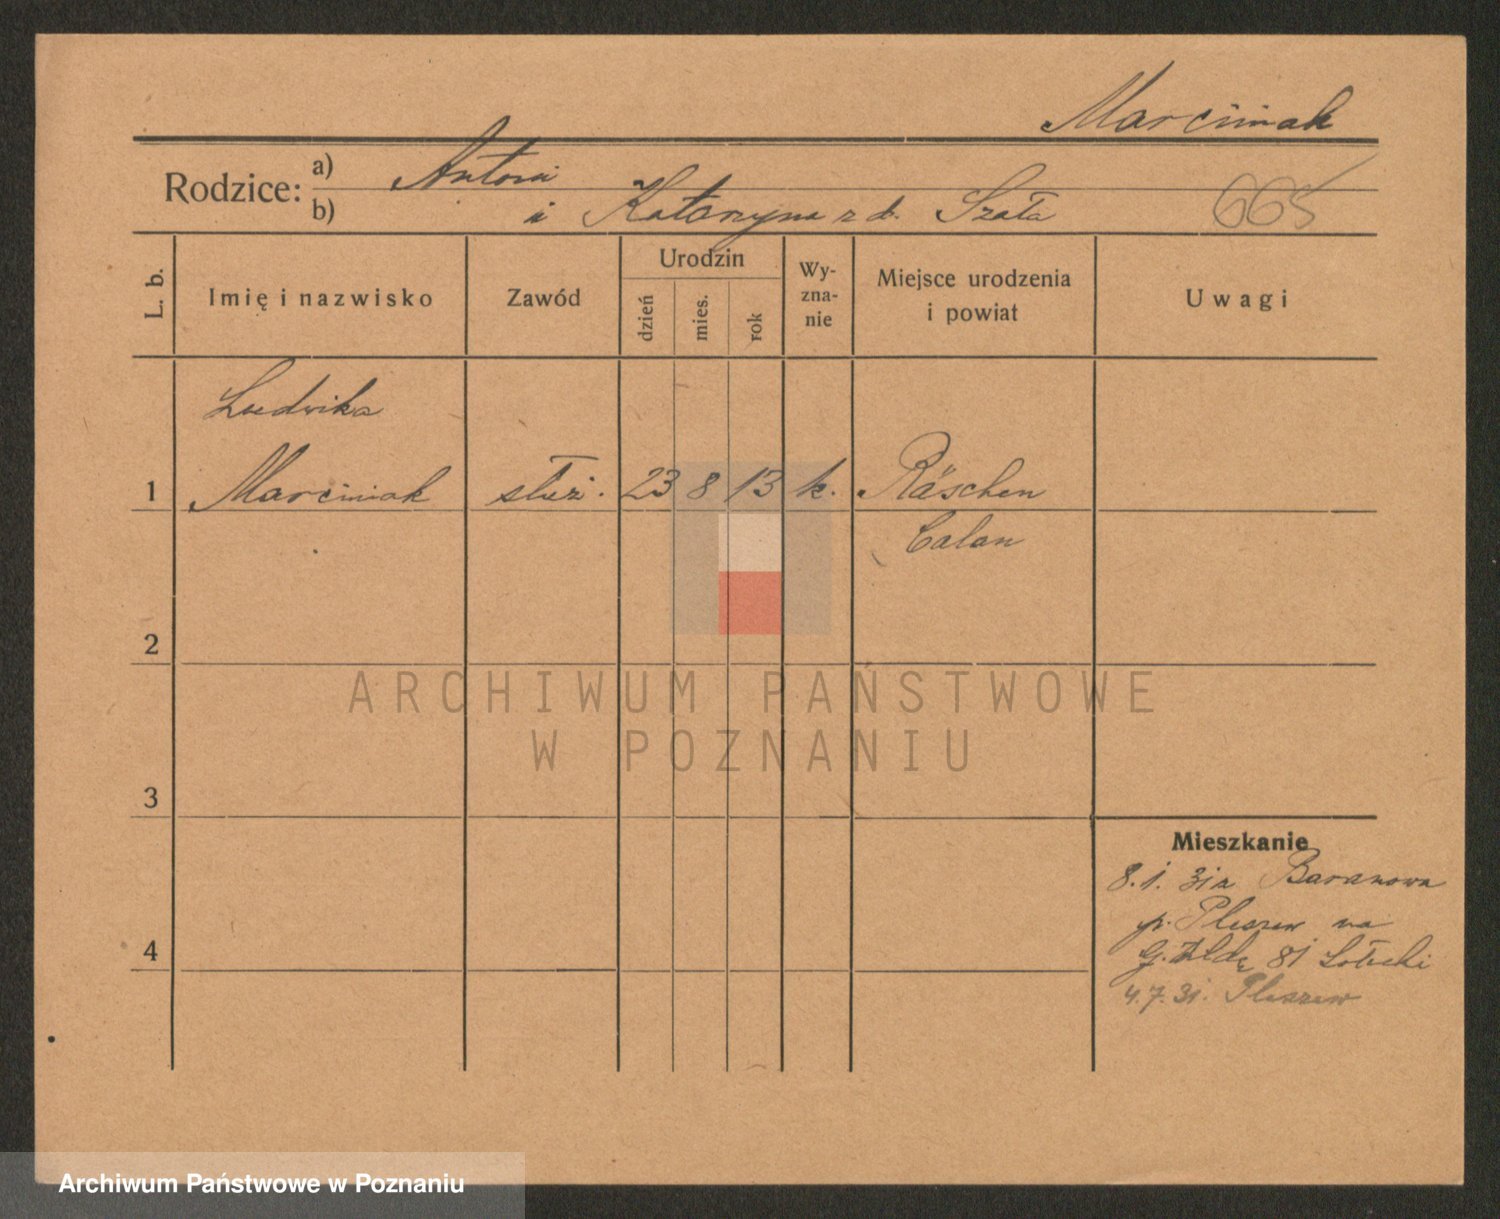 Marciniak
Rodzice: a) Antoni
b) i Katarzyna z d. Szała
665
L. b.
Imię i nazwisko
Zawód
Urodzin
dzień
mies.
rok
Wy-
zna-
nie
Miejsce urodzenia
i powiat
Uwagi
Ludwika
1 Marciniak służ. 23 8 13 k. Räschen
Calau
2
3
4
Mieszkanie
8.1.31 z Baranowa
p. Pleszew na
81
4.7.31. Pleszew
ARCHIWUM PAŃSTWOWE
W POZNANIU
Archiwum Państwowe w Poznaniu